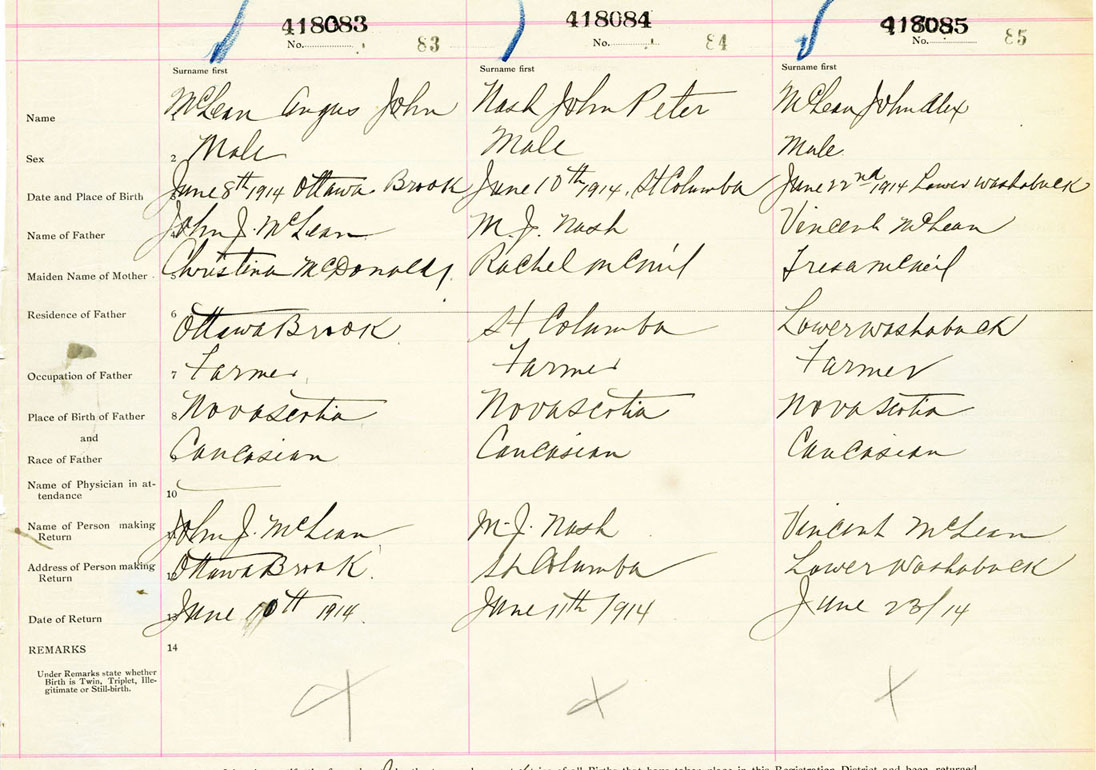 418083 418084 418085
No. 83 No. 84 No. 85
Surname first Surname first Surname first
Name McLean Angus John Nash John Peter McLean John Alex
Sex 2 Male Male Male
Date and Place of Birth June 8th 1914 Ottawa Brook June 10th 1914, St Columba June 22nd 1914 Lower Washaback
Name of Father 4 John J. McLean M. J. Nash Vincent McLean
Maiden Name of Mother 5 Christina McDonald Rachel McNeil Tresa McNeil
Residence of Father 6 Ottawa Brook St Columba Lower Washaback
Occupation of Father 7 Farmer Farmer Farmer
Place of Birth of Father 8 Nova Scotia Nova Scotia Nova Scotia
and
Race of Father Caucasian Caucasian Caucasian
Name of Physician in at-
tendance 10
Name of Person making
Return John J. McLean M. J. Nash Vincent McLean
Address of Person making
Return Ottawa Brook St Columba Lower Washaback
Date of Return 13 June 10th 1914 June 11th 1914 June 23/14
REMARKS 14
Under Remarks state whether
Birth is Twin, Triplet, Ille-
gitimate or Still-birth.
of all Births that have taken place in this Registration District and been returned